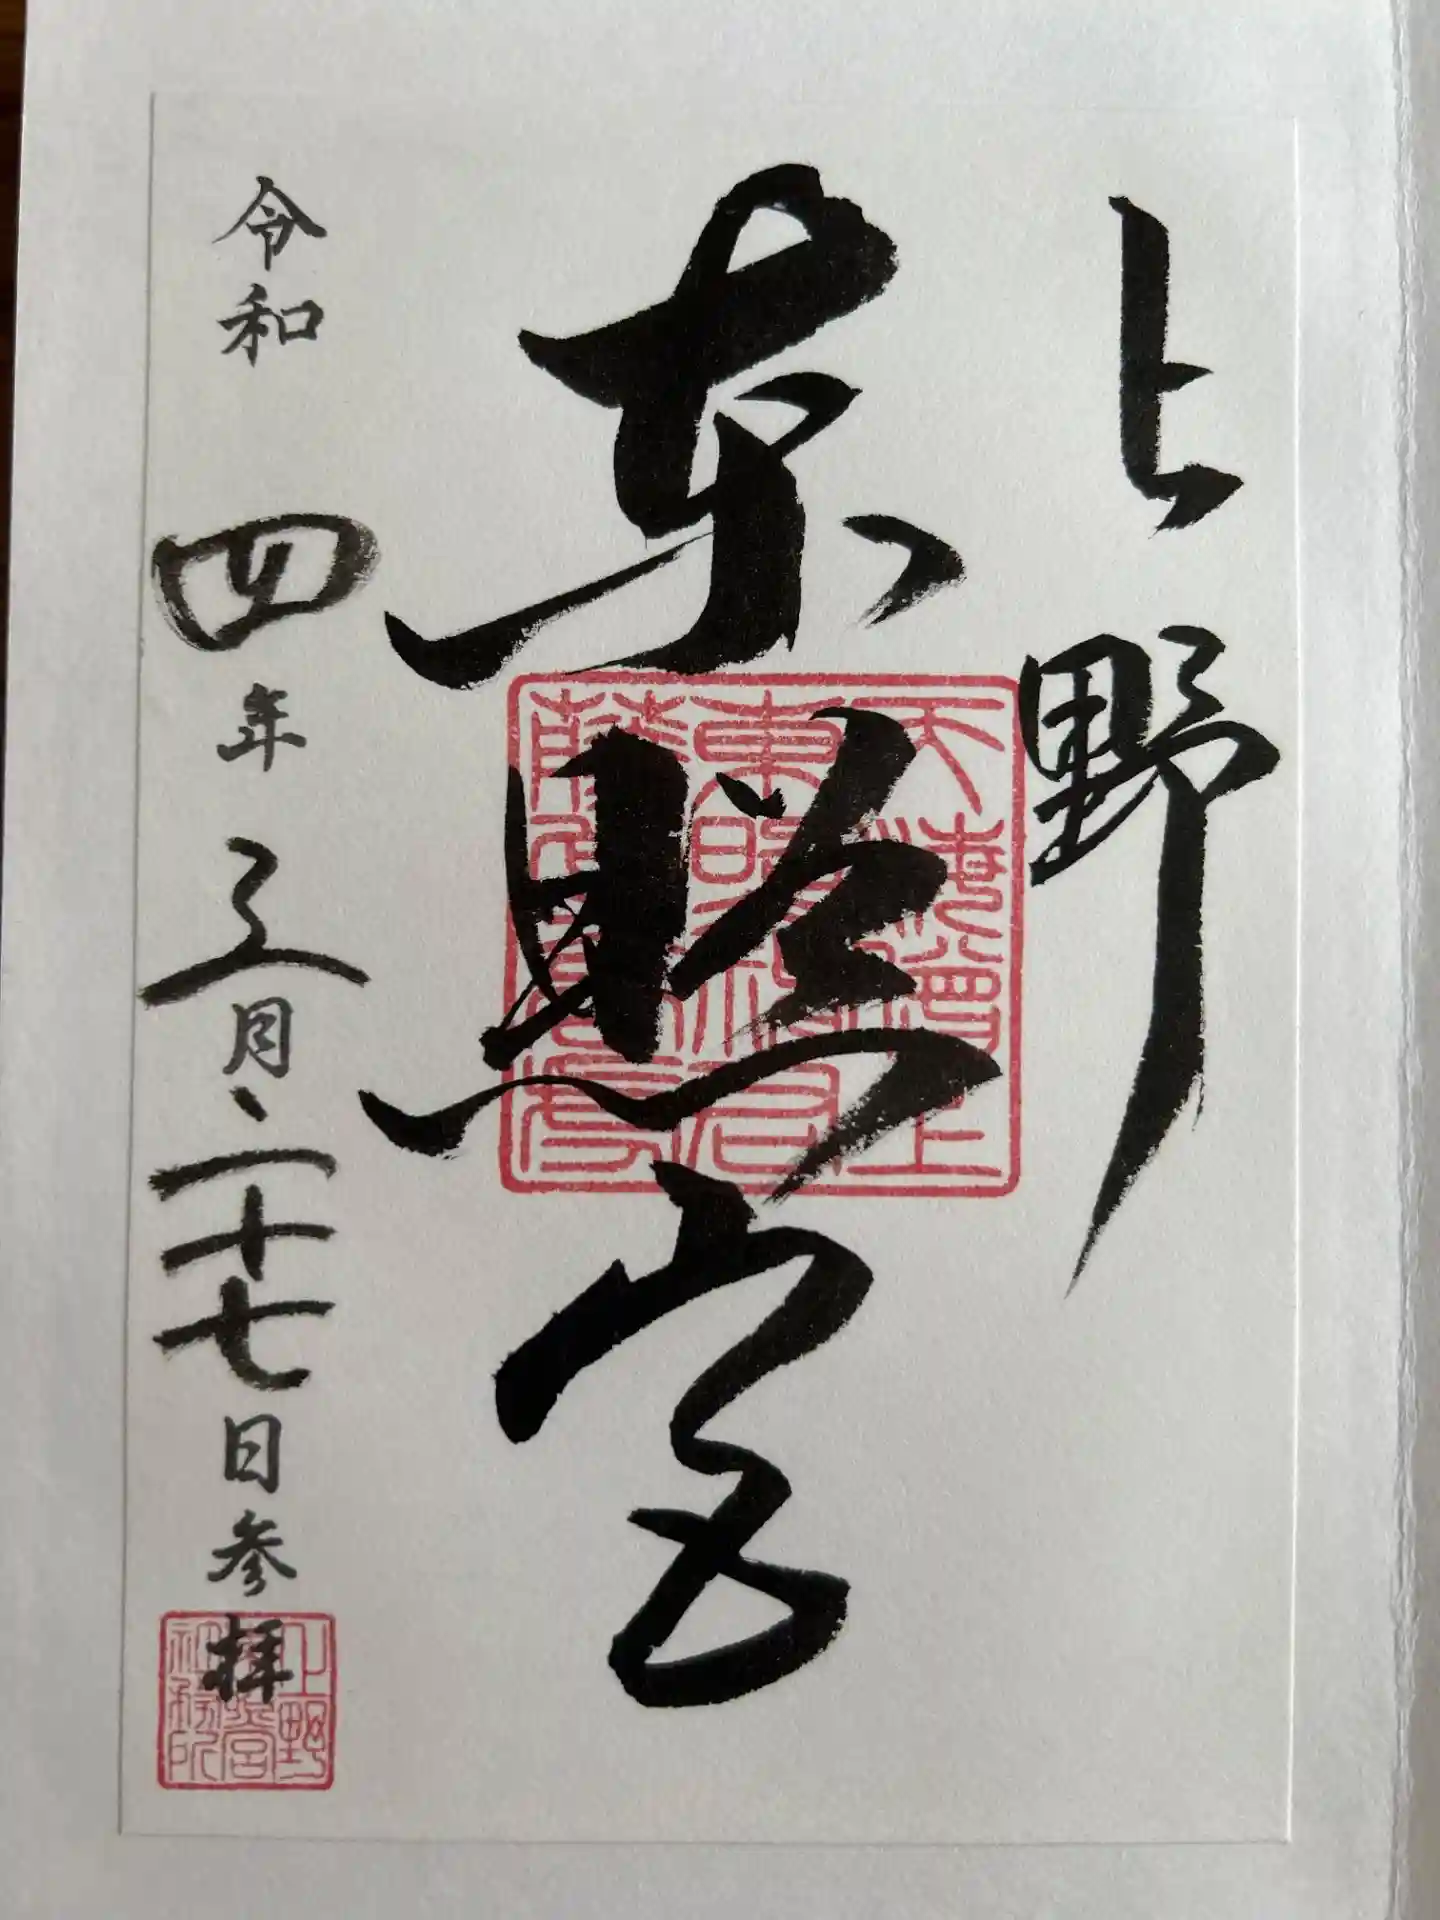 上野
東照宮
令和四年三月二十七日参拝
東照神君
上野
東照宮
社務所